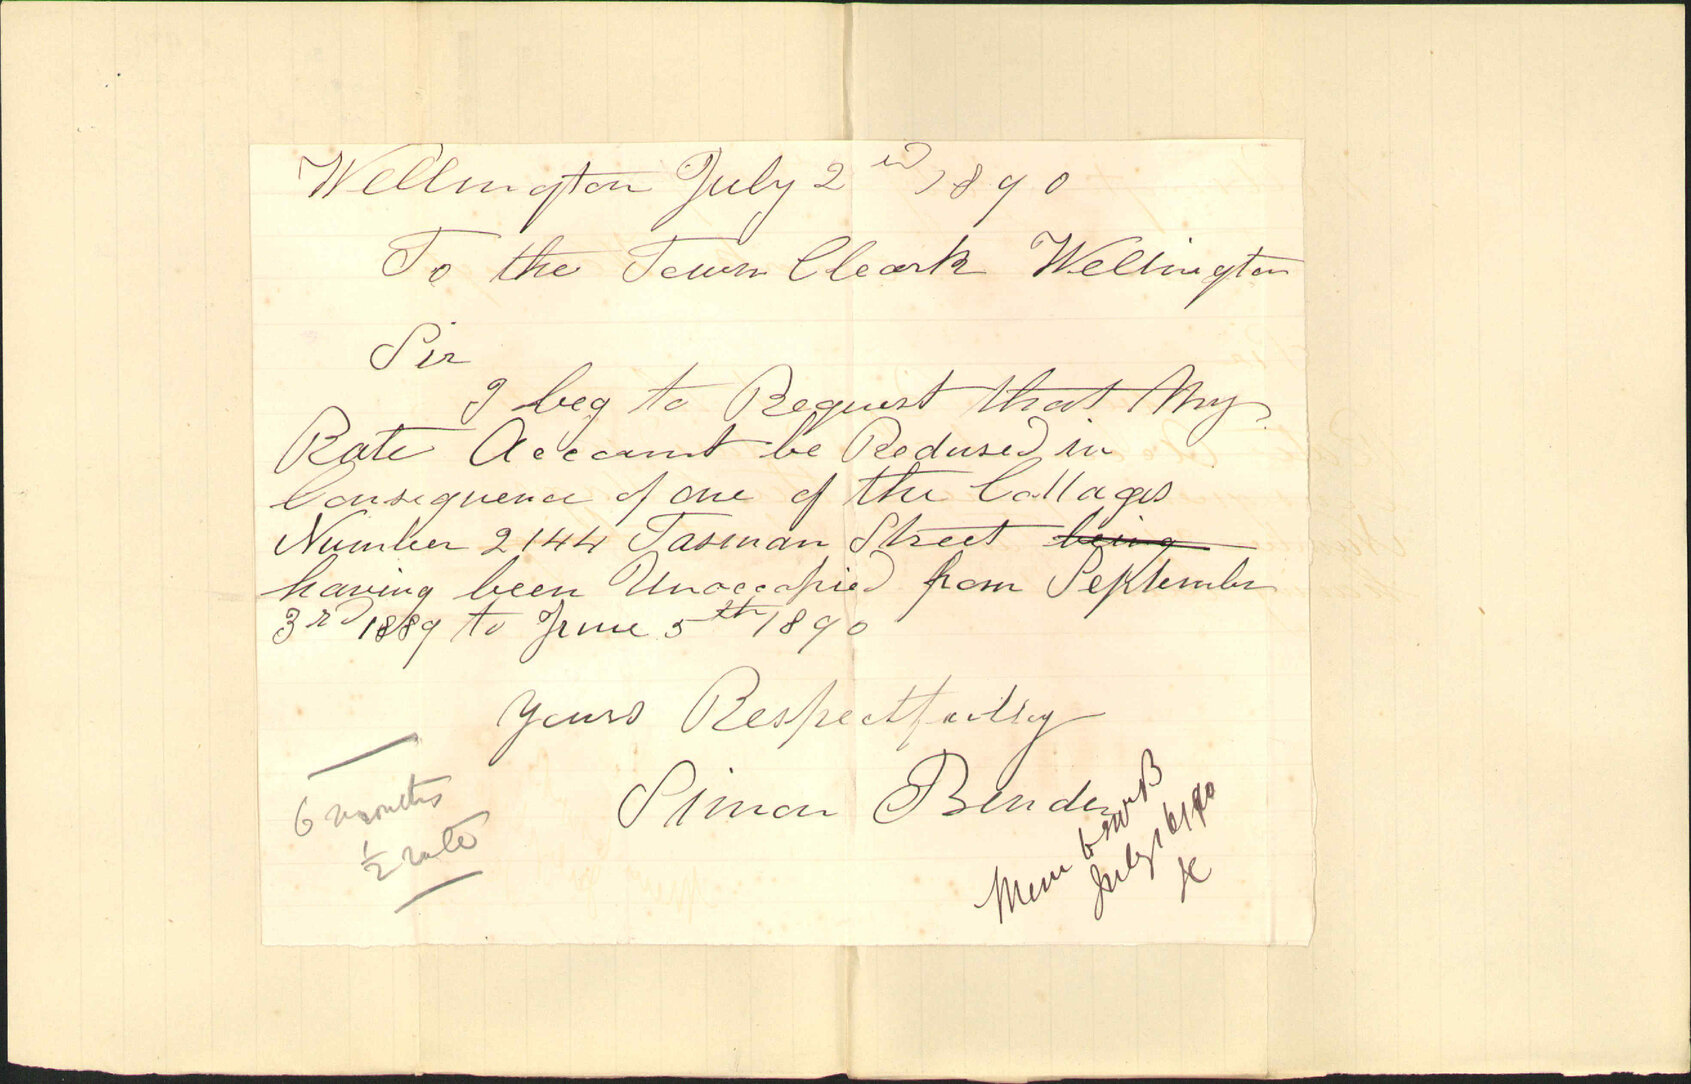 Wellington July 2nd 1890
To the Town Cleark Wellington
Sir
I beg to Request that My
Rate Account be Redused in
Consequence of one of the Cottages
Number 2144 Tasman Street being
having been Unoccopied from September
3rd 1889 to June 5th 1890
Yours Respectfully
Simon Bender
6 months
1/2 rate
Mem to
July 16/90